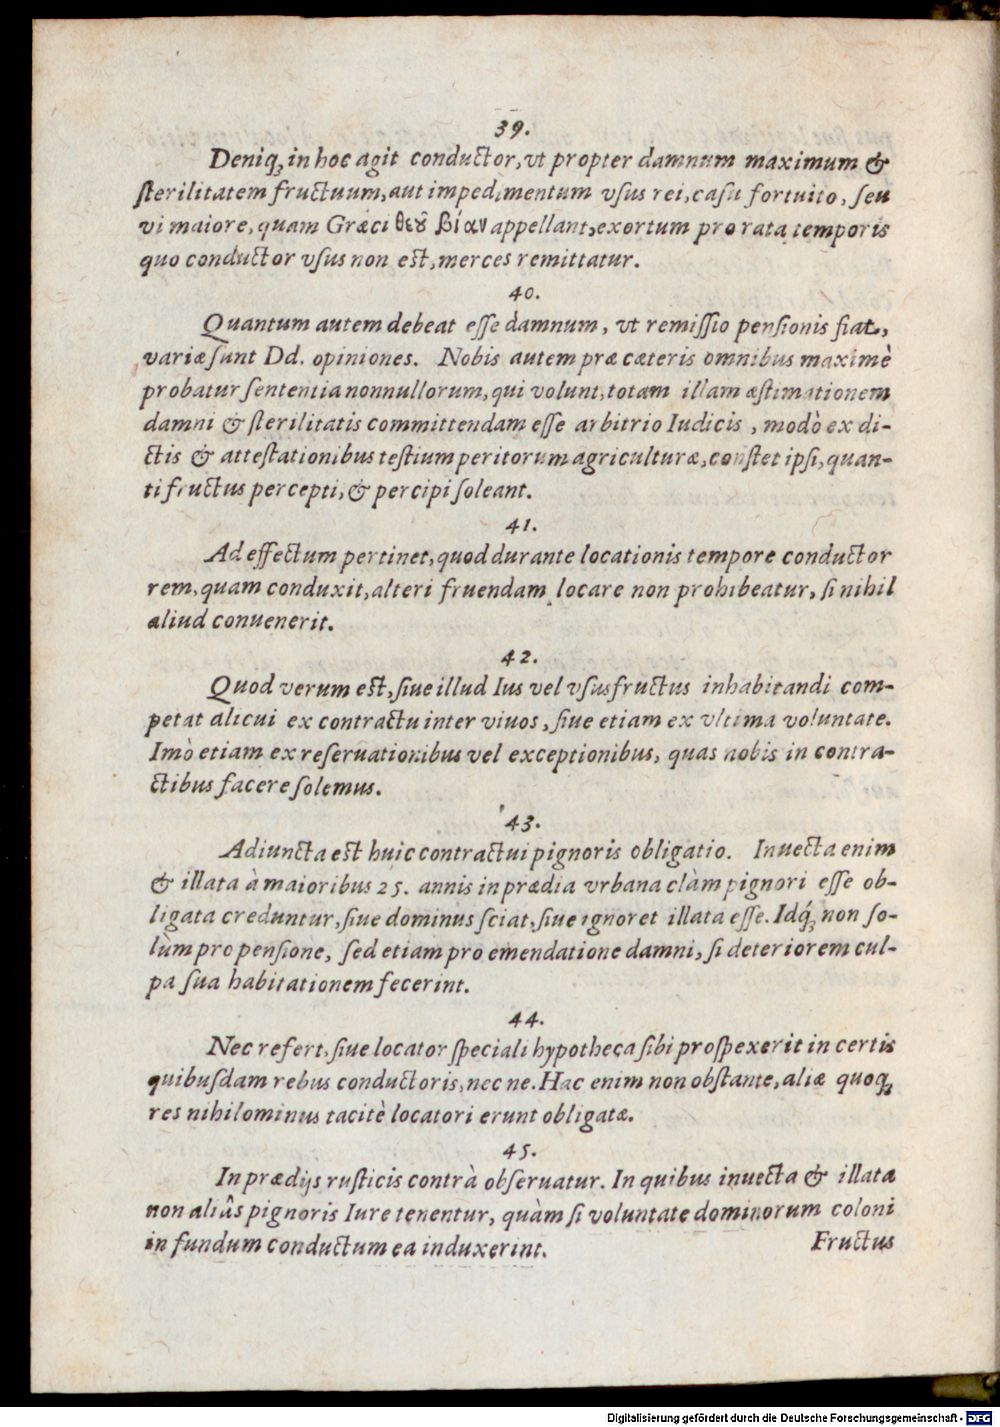 39.
Deniq́; in hoc agit conductor, vt propter damnum maximum &
ſterilitatem fructuum, aut impedimentum vſus rei, caſu fortuito, ſeu
vi maiore, quam Græci θεȣ͂ βίαν appellant, exortum pro rata temporis
quo conductor vſus non est, merces remittatur.
40.
Quantum autem debeat eſſe damnum, vt remiſſio penſionis fiat,
variæ ſunt Dd. opiniones. Nobis autem præ cæteris omnibus maximè
probatur ſententia nonnullorum, qui volunt, totam illam æſtimationem
damni & ſterilitatis committendam eſſe arbitrio Iudicis, modò ex di-
ctis & atteſtationibus teſtium peritorum agriculturæ, conſtet ipſi, quan-
ti fructus percepti, & percipi ſoleant.
41.
Ad effectum pertinet, quod durante locationis tempore conductor
rem, quam conduxit, alteri fruendam locare non prohibeatur, ſi nihil
aliud conuenerit.
42.
Quod verum est, ſiue illud Ius vel vſusfructus inhabitandi com-
petat alicui ex contractu inter viuos, ſiue etiam ex vltima voluntate.
Imò etiam ex reſeruationibus vel exceptionibus, quas nobis in contra-
ctibus facere ſolemus.
43.
Adiuncta est huic contractui pignoris obligatio. Inuecta enim
& illata à maioribus 25. annis in prædia vrbana clàm pignori eſſe ob-
ligata creduntur, ſiue dominus ſciat, ſiue ignoret illata eſſe. Idq́; non ſo-
lùm pro penſione, ſed etiam pro emendatione damni, ſi deteriorem cul-
pa ſua habitationem fecerint.
44.
Nec refert, ſiue locator ſpeciali hypotheca ſibi proſpexerit in certis
quibuſdam rebus conductoris, nec ne. Hac enim non obſtante, aliæ quoq;
res nihilominus tacitè locatori erunt obligatæ.
45.
In prædijs ruſticis contrà obſeruatur. In quibus inuecta & illata
non aliâs pignoris Iure tenentur, quàm ſi voluntate dominorum coloni
in fundum conductum ea induxerint.
Fructus
Digitalisierung gefördert durch die Deutsche Forschungsgemeinschaft - DFG